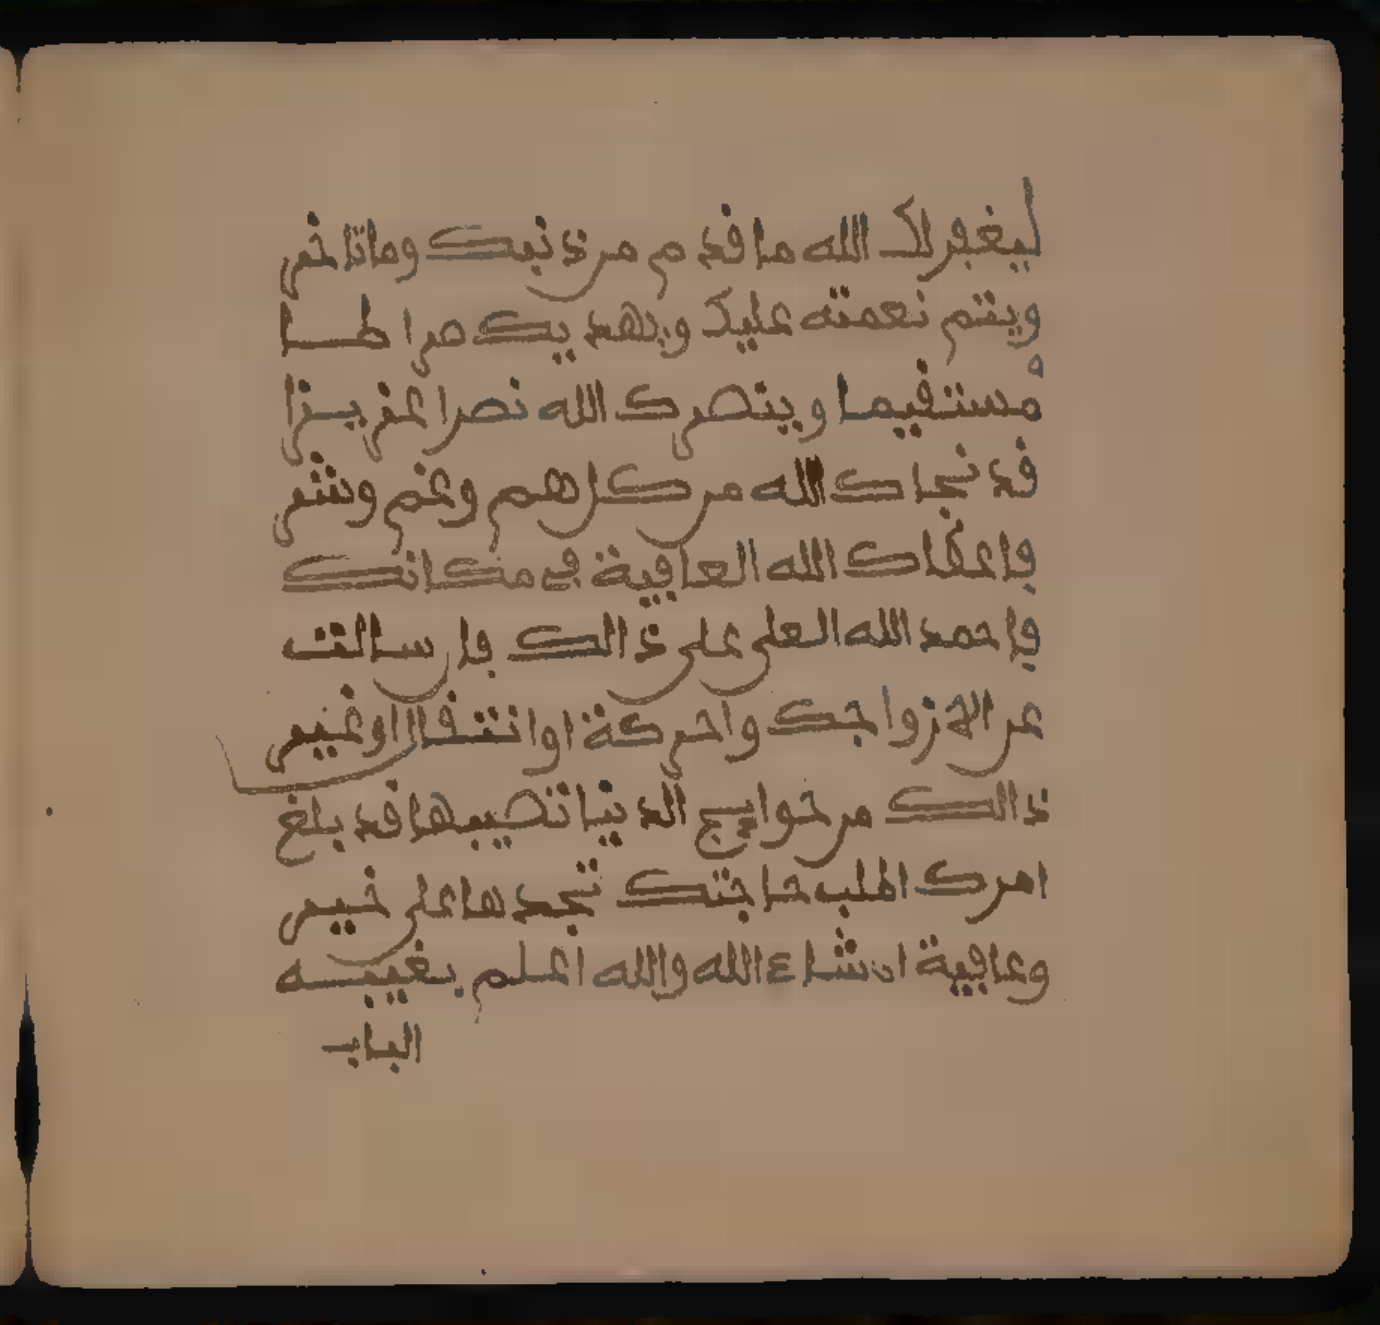 ليغفر لك الله ما قدم من ذنبك وما تاخر
ويتم نعمته عليك ويهديك صراطا
مستقيما وينصرك الله نصرا عزيزا
قد نجاك الله من كل هم وغم وشر
فاعطاك الله العافية في مكانك
فاحمد الله العلي على ذالك فان سالت
عن الازواجك واحركة او انتقال اوغير
ذالك من حوايج الدنيا تصيبها قد بلغ
امرك اطلب حاجتك تجدها على خير
وعافية ان شاء الله والله اعلم بغيبه
الباب